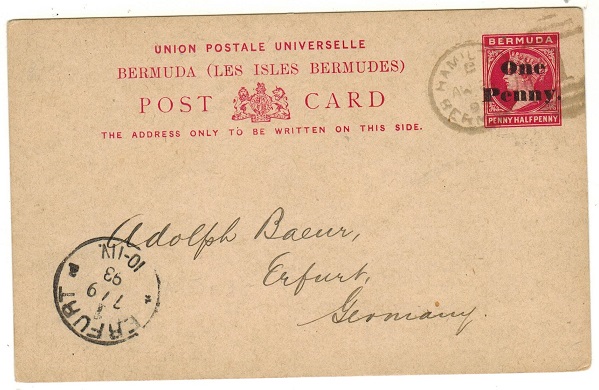 UNION POSTALE UNIVERSELLE
BERMUDA (LES ISLES BERMUDES)
POST CARD
THE ADDRESS ONLY TO BE WRITTEN ON THIS SIDE.
BERMUDA
One
Penny.
PENNY HALFPENNY
HAMIL
BER
Adolph Baeur,
Erfurt,
Germany.
ERFURT
7/9
93
10-11V.